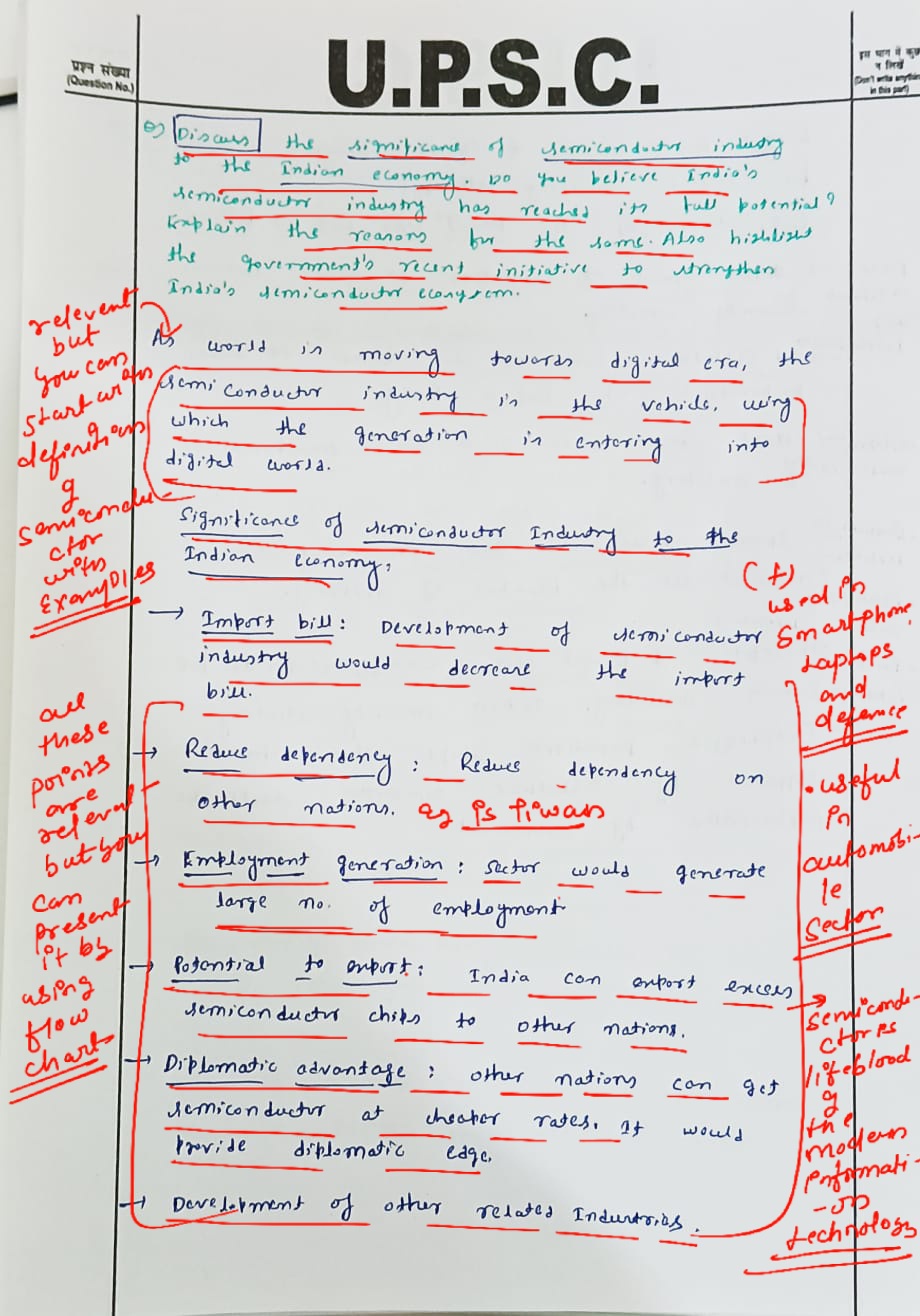 U.P.S.C.
प्रश्न संख्या
(Question No.)
इस भाग में कुछ
न लिखें
(Don't write anything
in this part)
Discuss the significance of semiconductor industry
to the Indian economy. Do you believe India's
semiconductor industry has reached its full potential?
Explain the reasons for the same. Also highlight
the government's recent initiative to strengthen
India's semiconductor ecosystem.
relevent
but
you can
start with
definition
of
semicondu
ctor
with
Examples
As world is moving towards digital era, the
semi conductor industry is the vehicle, using
which the generation is entering into
digital world.
Significance of semiconductor Industry to the
Indian economy,
→ Import bill: Development of semiconductor
industry would decrease the import
bill.
(+)
used in
Smartphone,
Laptops
and
defence
all
these
points
are
relevat
but you
can
present
it by
using
flow
chart
→ Reduce dependency: Reduce dependency on
other nations. eg is Tiwan
→ Employment generation: sector would generate
large no. of employment
→ Potential to export: India can export excess
semiconductor chips to other nations.
→ Diplomatic advantage: other nations can get
semiconductor at cheaper rates. It would
provide diplomatic edge.
→ Development of other related Industries.
• useful
in
automobi-
le
Sector
→ semicondu-
ctor is
lifeblood
of
the
modern
informati-
-on
technology